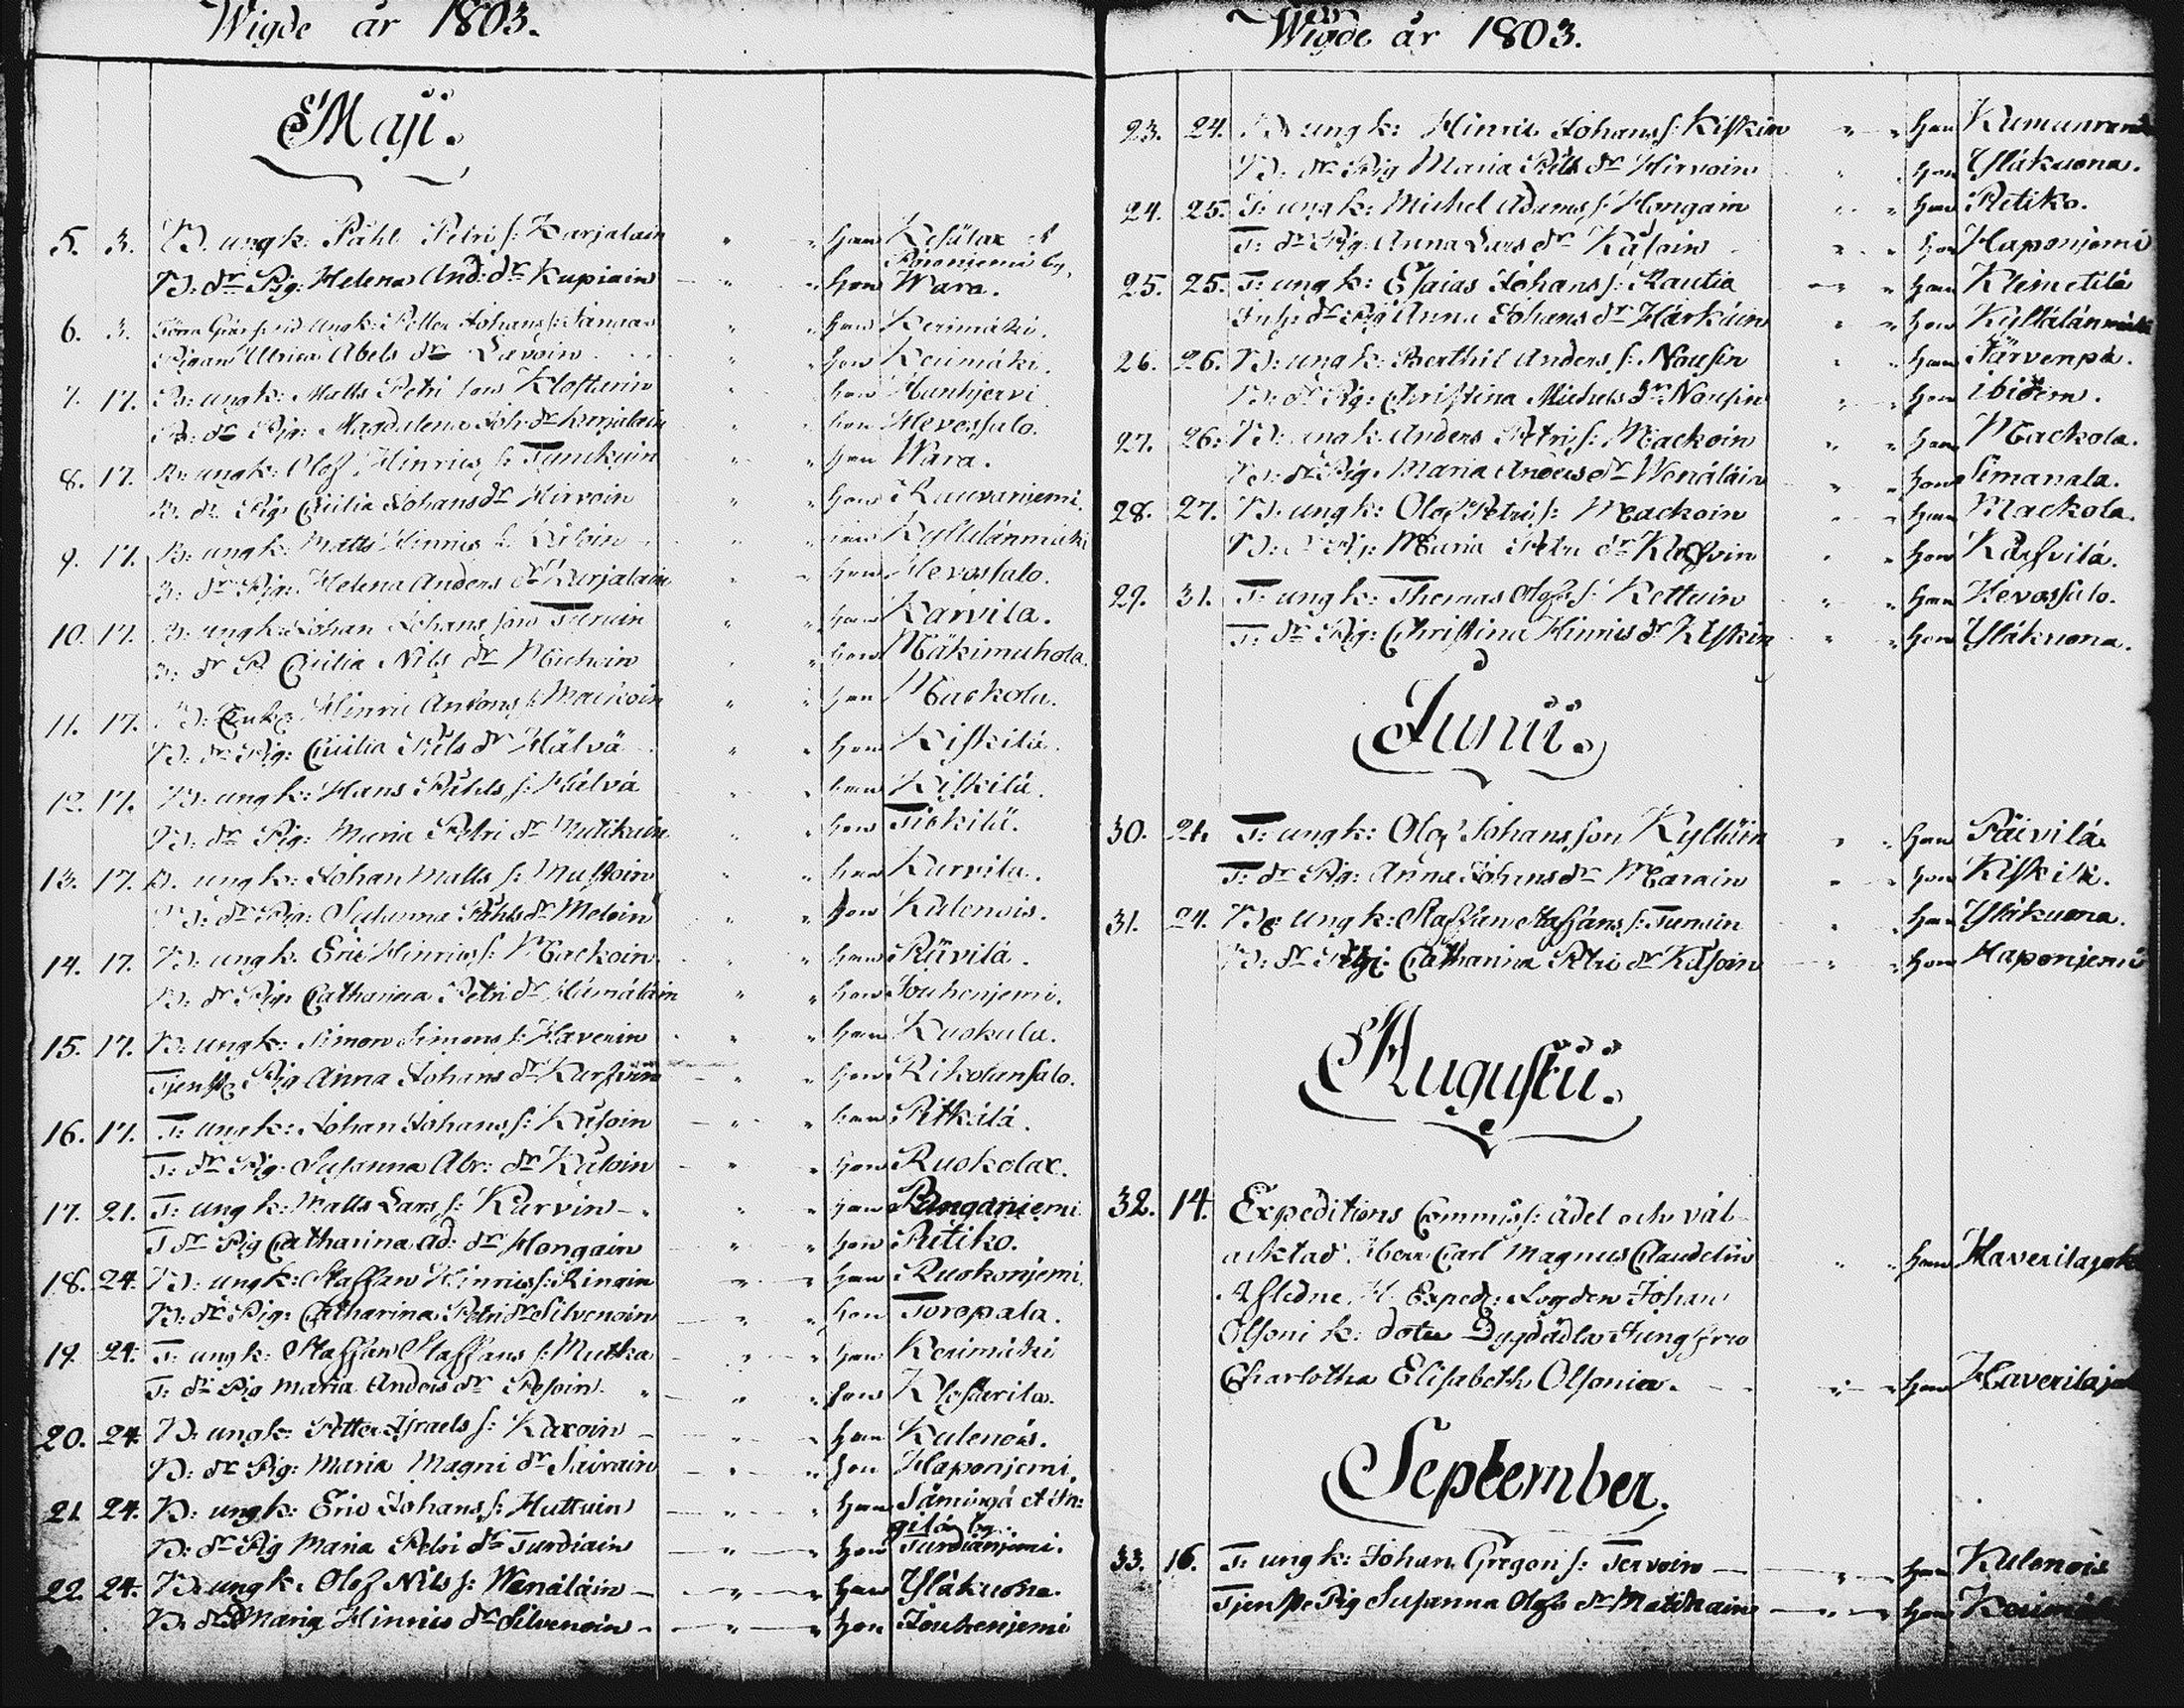 Wigde år 1803.
Maji.
5. 3. B. ungk: Påhl Petri s: Karjalain " " han Kesälax &
Poronjemi by.
B: dr Pig: Helena And: dr Kupiain " " hon Wara.
6. 3. ungk: Petter Johans s: " " han Kerimäki.
Pigan Ulrica Abels dr Savoin " " hon Kerimäki.
7. 17. B: ungk: Matts Petri son Klosturin " " han Hanhjervi
B: dr Pig: Magdalena Joh: dr Karjalain " " hon Hevossalo.
8. 17. B: ungk: Olof Hinrics s: Tynckyin " " han Wara.
B. dr Pig: Cicilia Johans dr Hirvoin " " hon Rauvanjemi.
9. 17. B: ungk: Matts Hinrics s: " " han Kyllälänmäki
B: dr Pig: Helena Anders dr Karjalain " " hon Hevossalo.
10. 17. B: ungk: Johan Johans son " " han Karvila.
B: dr P. Cicilia Nils dr " " hon Mäkimuhola.
11. 17. B: Enkl: Hinric Antons s: Mackoin " " han Mackola.
B: dr Pig: Cicilia Påls dr Hälvä " " hon Kiskilä.
12. 17. B: ungk: Hans Påhls s: Hälvä " " han Kiskilä.
B: dr Pig: Maria Petri dr Matikain " " hon Tiskilä.
13. 17. B. ungk: Johan Matts s: Mustoin " " han Karvila.
B: dr Pig: Susanna Påhls dr Meloin " " hon Kulenois.
14. 17. B: ungk. Eric Hinrics s: Mackoin " " han Rävilä.
B: dr Pig: Catharina Petri dr Himäläin " " hon Jouhenjemi.
15. 17. B: ungk: Simon Simons s: Haverin " " han Kuokula.
Tjenste Pig Anna Johans dr Karfvin " " hon Rikolansalo.
16. 17. T: ungk: Johan Johans s: Käsoin " " han Pitkälä.
T: dr Pig: Susanna Abr: dr Käsoin " " hon Ruokolax.
17. 21. T: ungk: Matts Lars s: Karvin " " han Ranganjemi
T dr Pig Catharina Ad: dr Hongain " " hon Ritiko.
18. 24. B: ungk: Staffan Hinrics s: Ringin " " han Ruokonjemi.
B: dr Pig: Catharina Petri dr Silvenoin " " hon Toropala.
19. 24. T: ungk: Staffan Staffans s: Mutka " " han Kerimäki
T: dr Pig Maria Anders dr Pesoin " " hon Klostarila.
20. 24. B: ungk: Petter Israels s: Kaxoin " " han Kulenois.
B: dr Pig: Maria Magni dr Sairain " " hon Haponjemi.
21. 24. B: ungk: Eric Johans s: Huttuin " " han Sämingä &
gilä by.
B: dr Pig Maria Petri dr Turdiain " " hon Turdianjemi.
22. 24. B: ungk: Olof Nils s: Wenäläin " " han Yläkuona.
B: dr P Maria Hinrics dr Silvenoin " " hon Jouhenjemi
Wigde år 1803.
23. 24. B ungk: Hinric Johans s: Kiskin " " han Kumunranda
B: dr Pig Maria Påls dr Hirvoin " " hon Yläkuona.
24. 25. T: ungk: Michel Adams s: Hongain " " han Ritiko.
T: dr Pig: Anna Lars dr Käsoin " " hon Haponjemi
25. 25. T: ungk: Esaias Johans s: Rautia " " han Klimetilä
Inh: dr Pig Anna Johans dr Härkin " " hon Kyllälänmäki
26. 26. B: ungk: Berthil Anders s: Nousin " " han Järvenpä.
B: dr Pig: Christina Michels dr Nousin " " hon ibidem.
27. 26. B: ungk. Anders Petri s: Mackoin " " han Mackola.
B: dr Pig: Maria Anders dr Wenäläin " " hon Simanala.
28. 27. B: ungk: Olof Petri s: Mackoin " " han Mackola.
B: dr Pig: Maria Petri dr Karfvin " " hon Karfvilä.
29. 31. T: ungk: Thomas Olofs s: Kettuin " " han Hevossalo.
T: dr Pig: Christina Hinrics dr Kiskin " " hon Yläkuona.
Junii.
30. 24. T: ungk: Olof Johansson Kylläin " " han Päivilä
T: dr Pig: Anna Johans dr Märäin " " hon Kiskilä.
31. 24. B: ungk: Staffan Staffans s: Turuin " " han Yläkuona.
B: dr Pig: Catharina Petri dr Käsoin " " hon Haponjemi
Augustii.
32. 14. Expeditions Commiss: ädel och väl-
acktad Herr Carl Magnus Claudelin " " han Haverilajoki
Afledne H. Exped: Fogden Johan
Olsoni k: doter Dygdädla Jungfru
Charlotha Elisabeth Olsonia. " " hon Haverilajoki
September.
33. 16. T: ungk: Johan Gregori s: Tervoin " " han Kulenois
Tjenste Pig Susanna Olofs dr Matikain " " hon Kerimäki